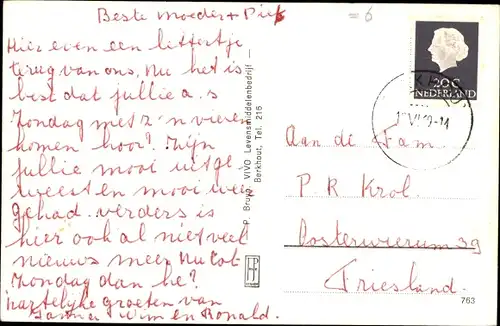 Beste moeder + Piet
= 6
Hier even een lettertje
terug van ons, Nu het is
best dat jullie a.s
Zondag met z'n vieren
komen hoor? Zijn
jullie mooi uitge
weest en mooi weer
gehad. verders is
hier ook al niet veel
nieuws meer Nu tot
Zondag dan he?
hartelijke groeten van
Wim en Ronald.
P. Bruyn VIVO Levensmiddelenbedrijf -
Berkhout, Tel. 216
20c
NEDERLAND
Aan de Fam.
P R Krol.
Oosterwierum 39
Friesland.
763